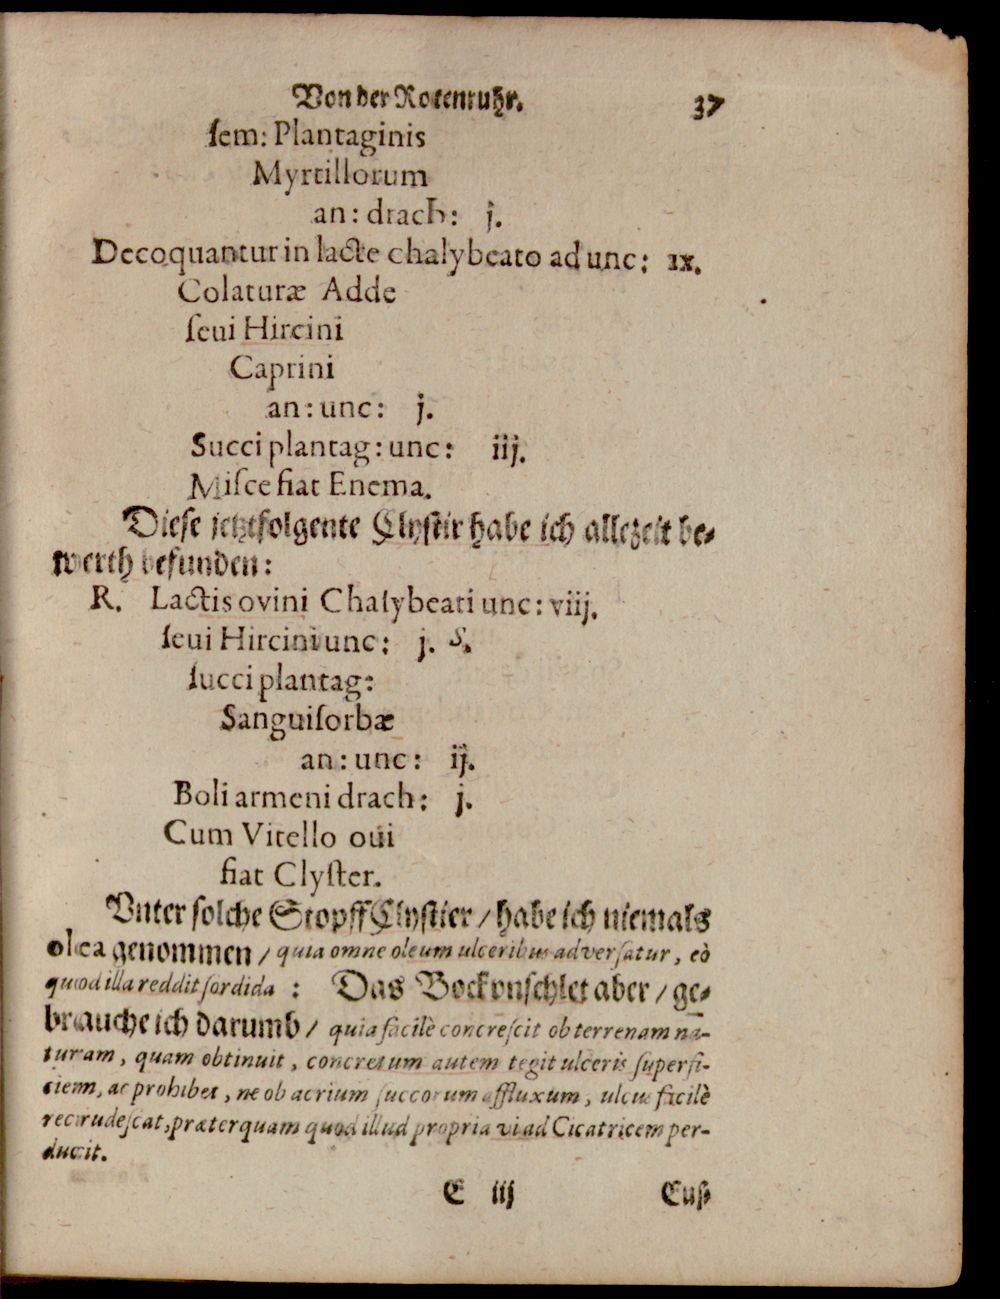 Von der Rotenruhr. 37
ſem: Plantaginis
Myrtillorum
an: drach: j.
Decoquantur in lacte chalybeato ad unc: ix.
Colaturæ Adde
ſeui Hircini
Caprini
an: unc: j.
Succi plantag: unc: iij.
Miſce fiat Enema.
Dieſe jetztfolgente Clyſtir habe ich allezeit be-
werth befunden:
R. Lactis ovini Chalybeati unc: viij.
ſeui Hircini unc: j. S.
ſucci plantag:
Sanguiſorbæ
an: unc: ij.
Boli armeni drach: j.
Cum Vitello oui
fiat Clyſter.
Vnter ſolche StopffClyſtier / habe ich niemals
olea genommen / quia omne oleum ulceribus adverſatur, eò
quod illa reddit ſordida : Das Bocknſchlet aber / ge-
brauche ich darumb / quia facilè concreſcit ob terrenam na-
turam, quam obtinuit, concretum autem tegit ulceris ſuperfi-
ciem, ac prohibet, ne ob acrium ſuccorum affluxum, ulcus facilè
recrudeſcat, præterquam quod illud propria vi ad Cicatricem per-
ducit.
C iij Euſ-